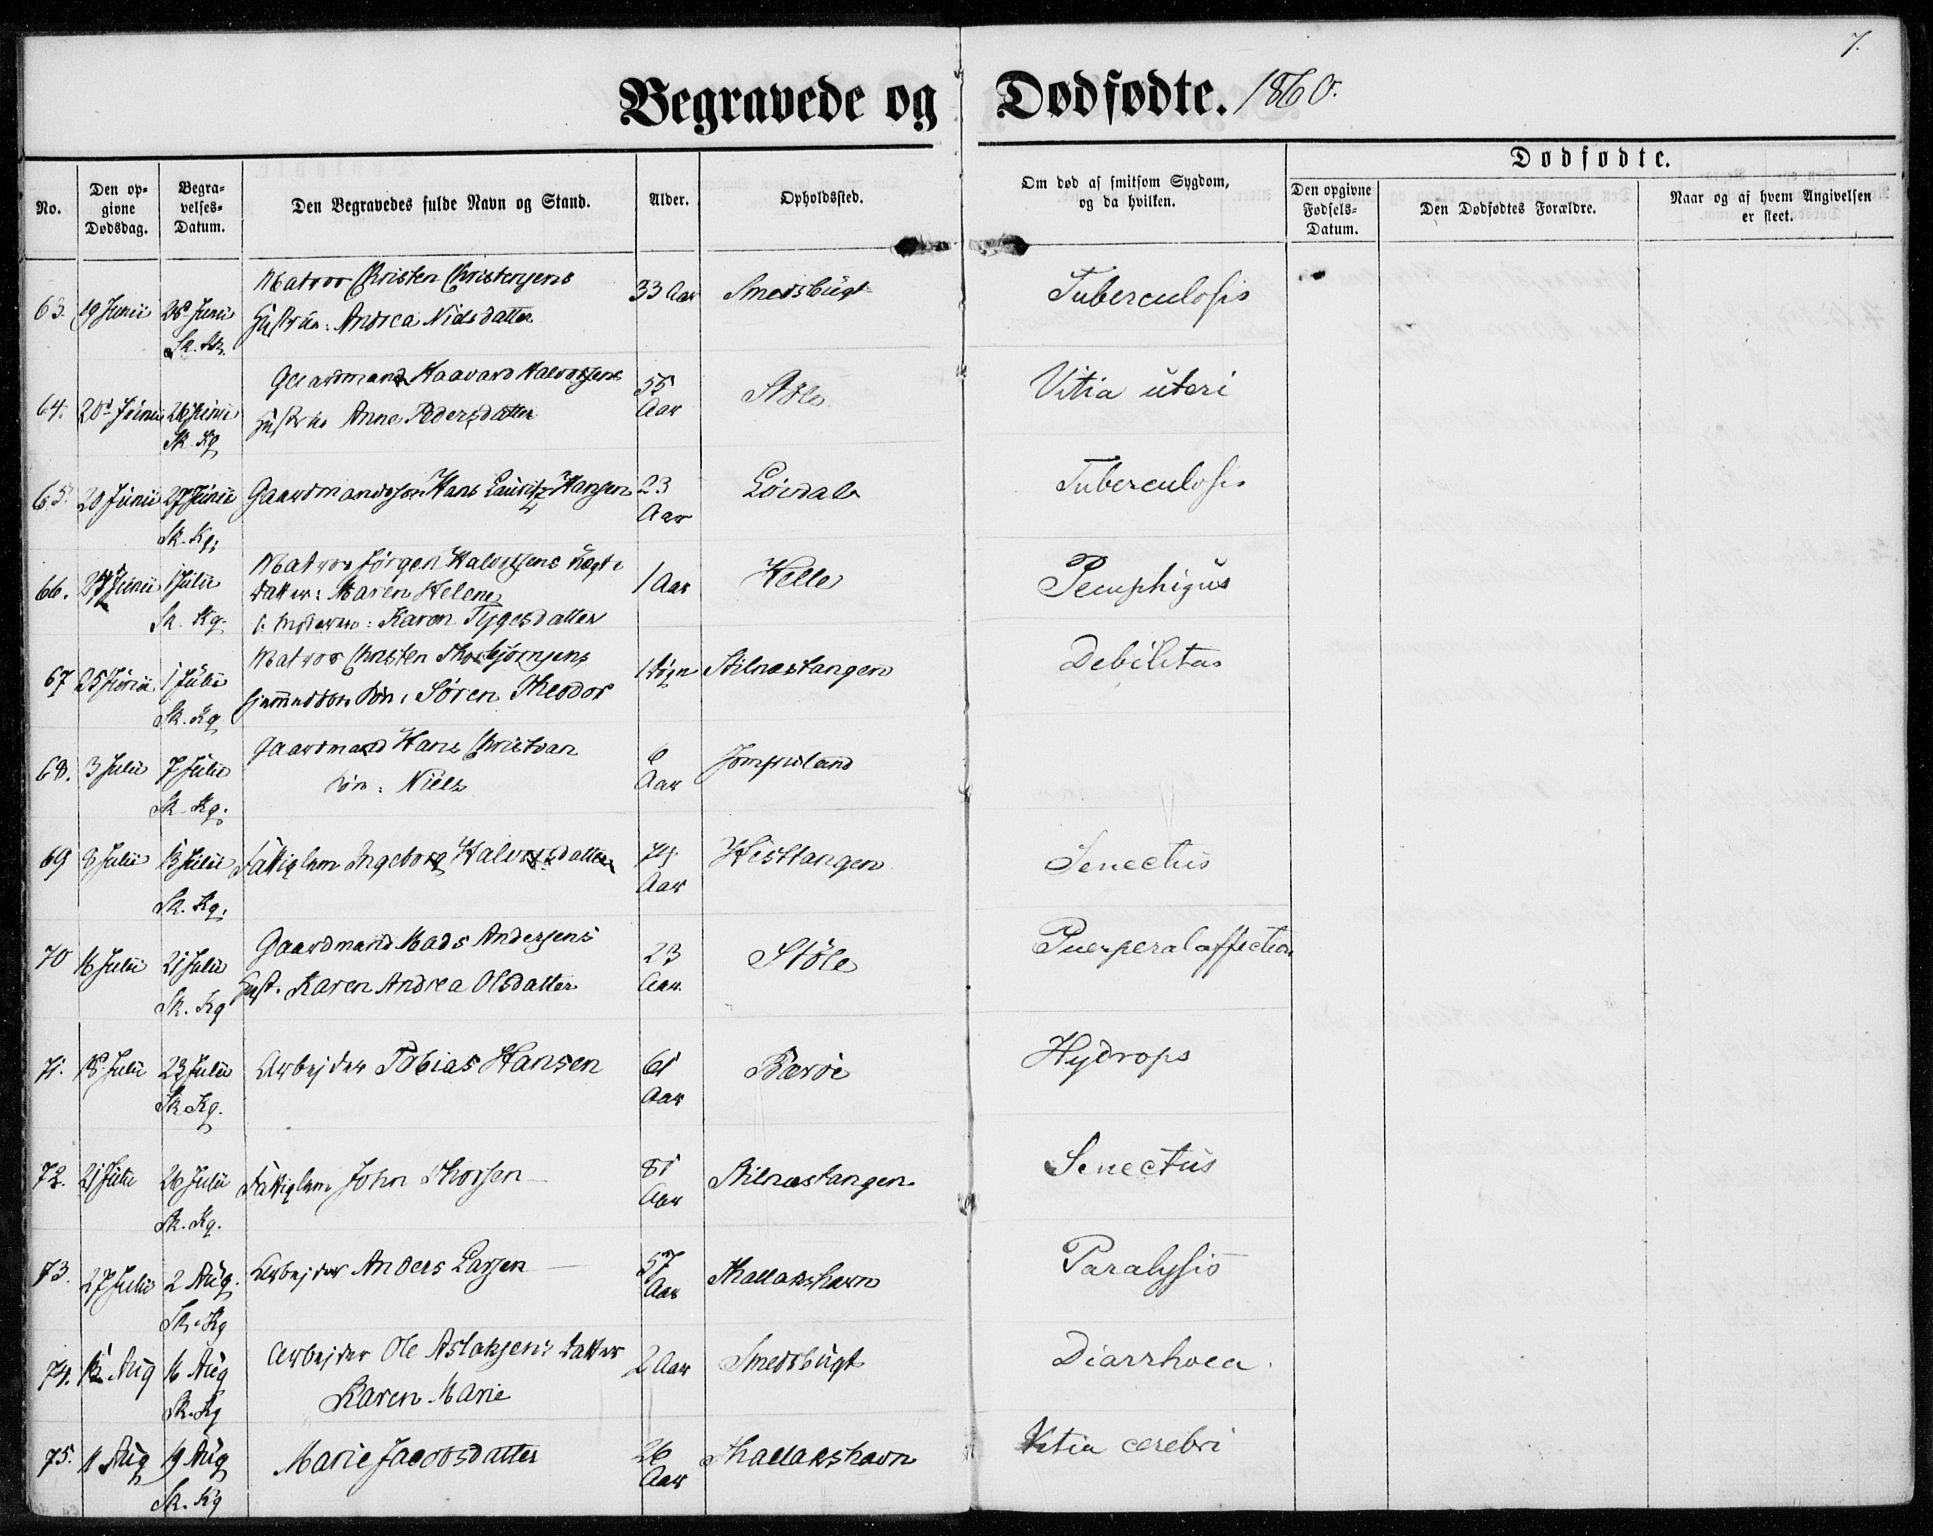 7.
Begravede og Dødfødte. 1860.
No.
Den opgivne Dødsdag.
Begravelses-Datum.
Den Begravedes fulde Navn og Stand.
Alder.
Opholdssted.
Om død af smitsom Sygdom, og da hvilken.
Dødfødte.
Den opgivne Fødsels-Datum.
Den Dødfødtes Forældre.
Naar og af hvem Angivelsen er skeet.
63. 19 Junii 28 Junii Matros Christen Christensens 33 Aar Smedsbugt Tuberculosis
Sk. Kg. Hustrue: Andrea Nielsdatter
64. 20 Junii 26 Junii Gaardmand Haavard Halvorsens 55 Støle Vitia uteri
Sk. Kg Hustrue Anne Pedersdatter Aar
65. 20 Junii 27 Junii Gaardmandssøn Hans Lauritz Hansen 23 Løvdal Tuberculosis
Sk. Kg. Aar
66. Junii 1 Julii Matros Jørgen Halvorsens 1 Aar Kelle Pemphigus
Sk. Kg. Datter: Maren Helene
Moderen: Karen Tygesdatter
67 25 Junii 1 Julii Matros Christen Thorbjørnsens 1 Døgn Stilnestangen Debilitas
Sk. Kg. Søn, Søren Theodor
68. 3 Julii 7 Julii Gaardmand Hans Christian 6 Jomfruland
Sk. Kg. Søn: Niels Aar
69 8 Julii 13 Julii Fattiglem Ingeborg Halvorsdatter 74 Hesttangen Senectus
Sk. Kg. Aar
70 16 Julii 21 Julii Gaardmand Mads Andersens 23 Støle Puerperalaffection
Sk. Kg Hust. Karen Andrea Olsdatter Aar
71. 18 Julii 23 Julii Arbejder Tobias Hansen 61 Bærøe Hydrops
Sk. Kg. Aar
72. 21 Julii 26 Julii Fattiglem John Thorsen 81 Stilnestangen Senectus
Sk. Kg. Aar
73. 27 Julii 2 Aug. Arbejder Anders Larsen 57 Thallakshavn Paralysis
Sk. Kg Aar
74. 12 Aug 16 Aug Arbejder Ole Aslaksens Datter 2 Aar Smedsbugt Diarrhoea.
Sk. Kg Karen Marie
75. 11 Aug 19 Aug Marie Jacobsdatter 26 Thallakshavn Vitia cerebri
Sk. Kg Aar